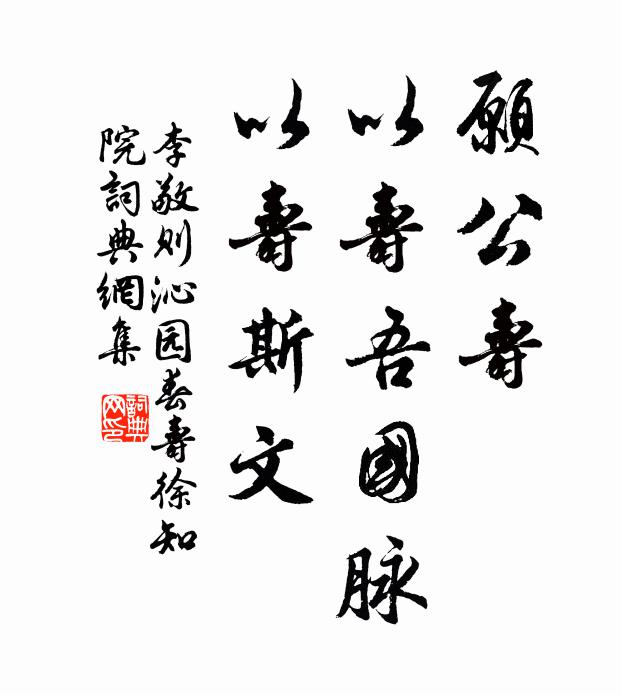 願公壽
以壽吾國脉
以壽斯文
李敬则沁园春壽徐知
院詞典網集
詞典网印